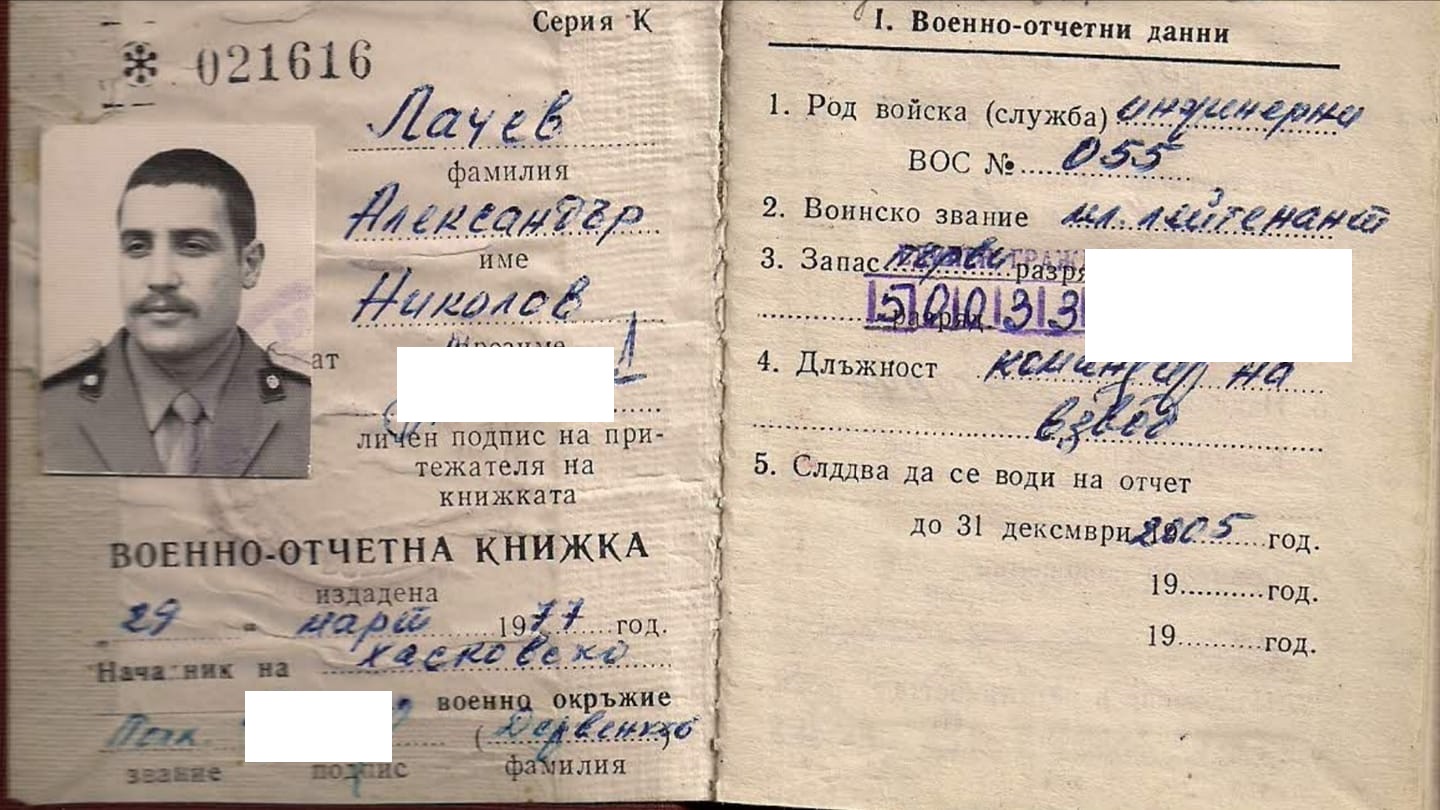 Серия К
021616
Лачев
фамилия
Александър
име
Николов
ат
личен подпис на при-
тежателя на
книжката
ВОЕННО-ОТЧЕТНА КНИЖКА
издадена
29 март 1977 год.
Началник на Хасковско
военно окръжие
Полк. (Дервенко)
звание подпис фамилия
I. Военно-отчетни данни
1. Род войска (служба) инженерни
ВОС № 055
2. Воинско звание мл. лейтенант
3. Запас първи разря
50033
разряд
4. Длъжност командир на
взвод
5. Слддва да се води на отчет
до 31 дексмври 2005 год.
19 год.
19 год.